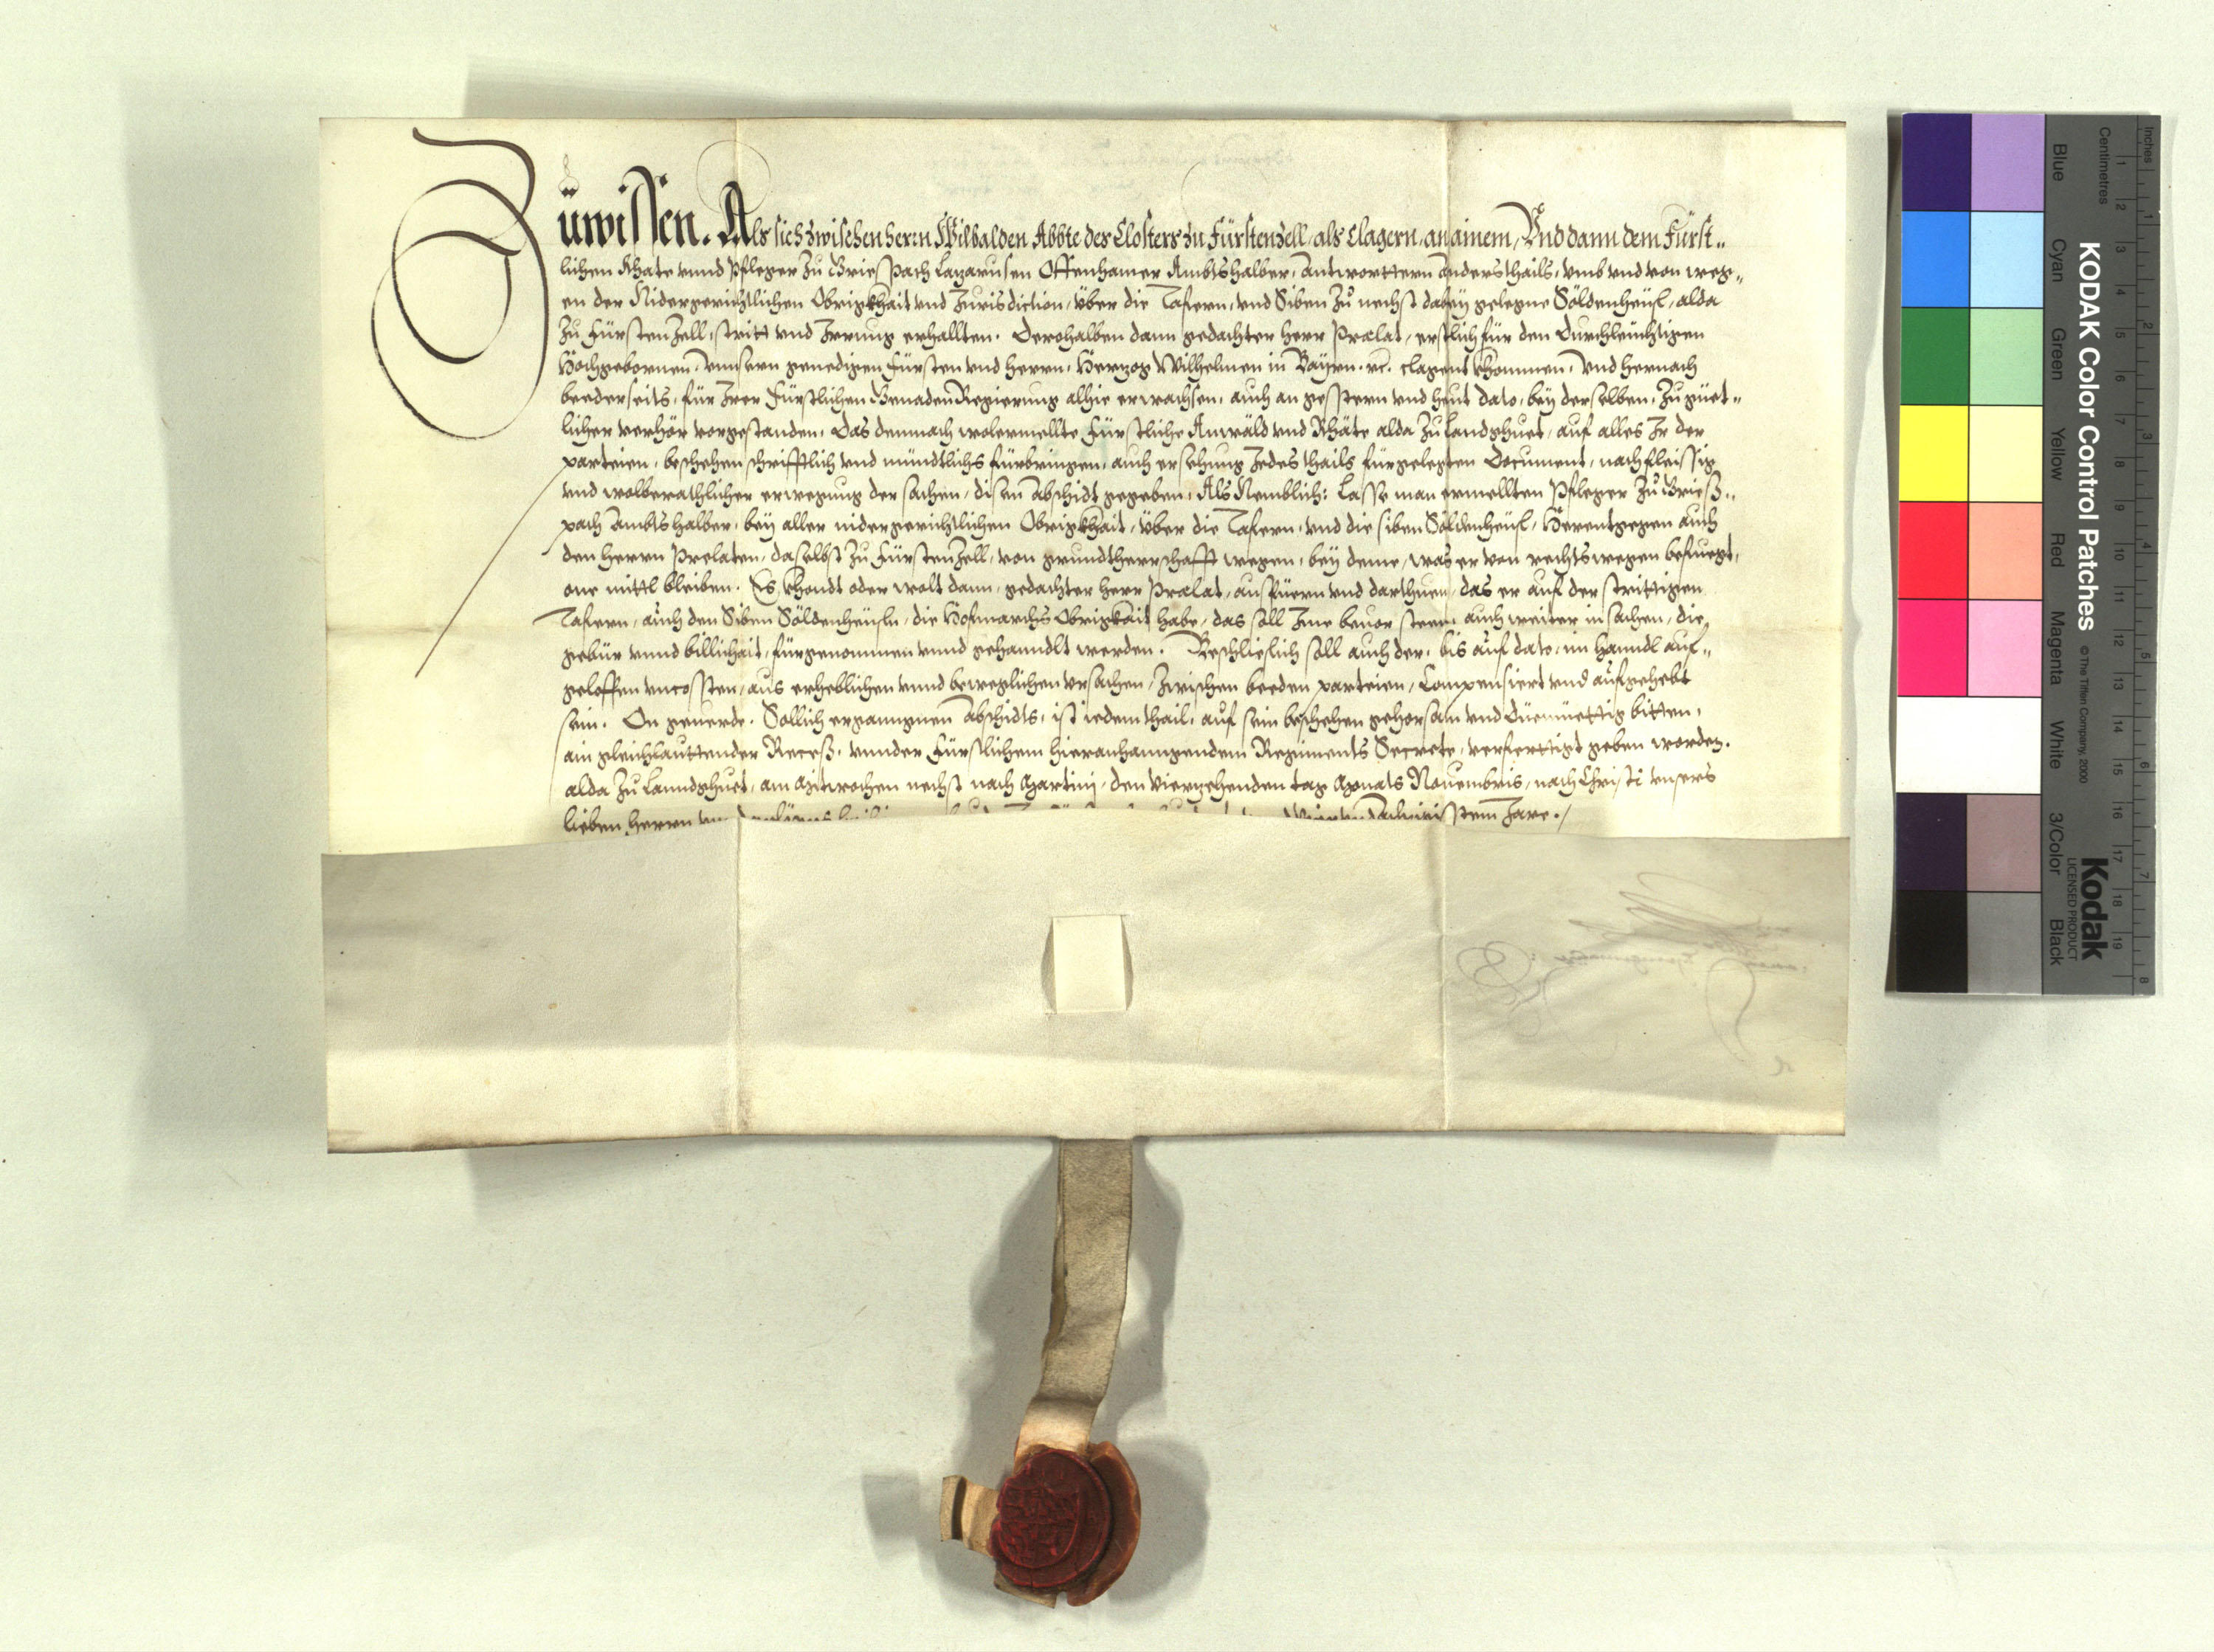 Zuwissen. Als sich zwischen herrn Wilbalden Abbte des Closters zu Fürstenzell, als Clagern, an ainem, Vnd dann dem Fürst„
lichen Rhate vnnd Pfleger zu Griespach Lazarusen Offenhamer Ambtshalber, Antworttern anders thails, vmb vnd von weg„
en der Nidergerichtlichen Obrigkhait vnd Jurisdiction, über die Tafern, vnd Siben zu nechst dabey gelegne Söldenheüsl, alda
zu Fürstenzell, stritt vnd Irrung erhallten. Derohalben dann gedachter herr Praelat, erstlich für den Durchleüchtigen
Hochgebornen, vnnsern genedigen Fürsten vnd herrn, Hertzog Wilhelmen in Bayrn. rc. clagent khommen, vnd hernach
beederseits, für Irer Fürstlichen Gnaden Regierung alhie erwachsen, auch an gesstern vnd heut dato, bey derselben, zu güet„
licher verhör vorgestanden, Das demnach wolermellte Fürstliche Anwäld vnd Rhäte alda zu Landshuet, auf alles Ir der
parteien, beschehen schrifftlich vnd mündtlichs fürbringen, auch ersehung Jedes thails fürgelegten Document, nach fleissig
vnd wolberathlicher erwegung der sachen, disen abschidt gegeben, Als Nemblich: Lasse man ermellten Pfleger zu Grieß„
pach Ambtshalber, bey aller nidergerichtlichen Obrigkhait, über die Tafern, vnd die siben Söldenheüsl, Herentgegen auch
den herrn Prelaten, daselbst zu Fürstenzell, von grundtherrschafft wegen, bey deme, was er von rechtswegen befuegt,
one mittl bleiben. Es khondt oder wolt dann, gedachter herr Praelat, ausfüern vnd darthuen, das er auf der strittigen
Tafern, auch den Siben Söldenheüsln, die Hofmarchs Obrigkait habe, das soll Ime beuor steen, auch weiter in sachen, die
gebür vnnd billichait, fürgenommen vnnd gehanndlt werden. Beschlieslich soll auch der, bis auf dato, im hanndl auf„
geloffen vncossten, aus erheblichen vnnd beweglichen vrsachen, zwischen beeden parteien, Compensiert vnd aufgehebt
sein. On geuerde. Sollich erganngnen abschidts, ist iedem thail, auf sein beschehen gehorsam vnd diemüettig bitten,
ain gleichlauttender Recess, vnnder Fürstlichem hieranhanngendem Regiments Secrete, verferttigt geben worden.
alda zu Lanndshuet, am Mitwochen nechst nach Martinj, den vierzehenden tag Monats Nouembris, nach Christi vnsers
lieben herrn Jare./
KODAK Color Control Patches
© The Tiffen Company, 2000
Kodak
LICENSED PRODUCT
Blue Cyan Green Yellow Red Magenta White 3/Color Black
Centimetres 1 2 3 4 5 6 7 8 9 10 11 12 13 14 15 16 17 18 19
Inches 1 2 3 4 5 6 7 8